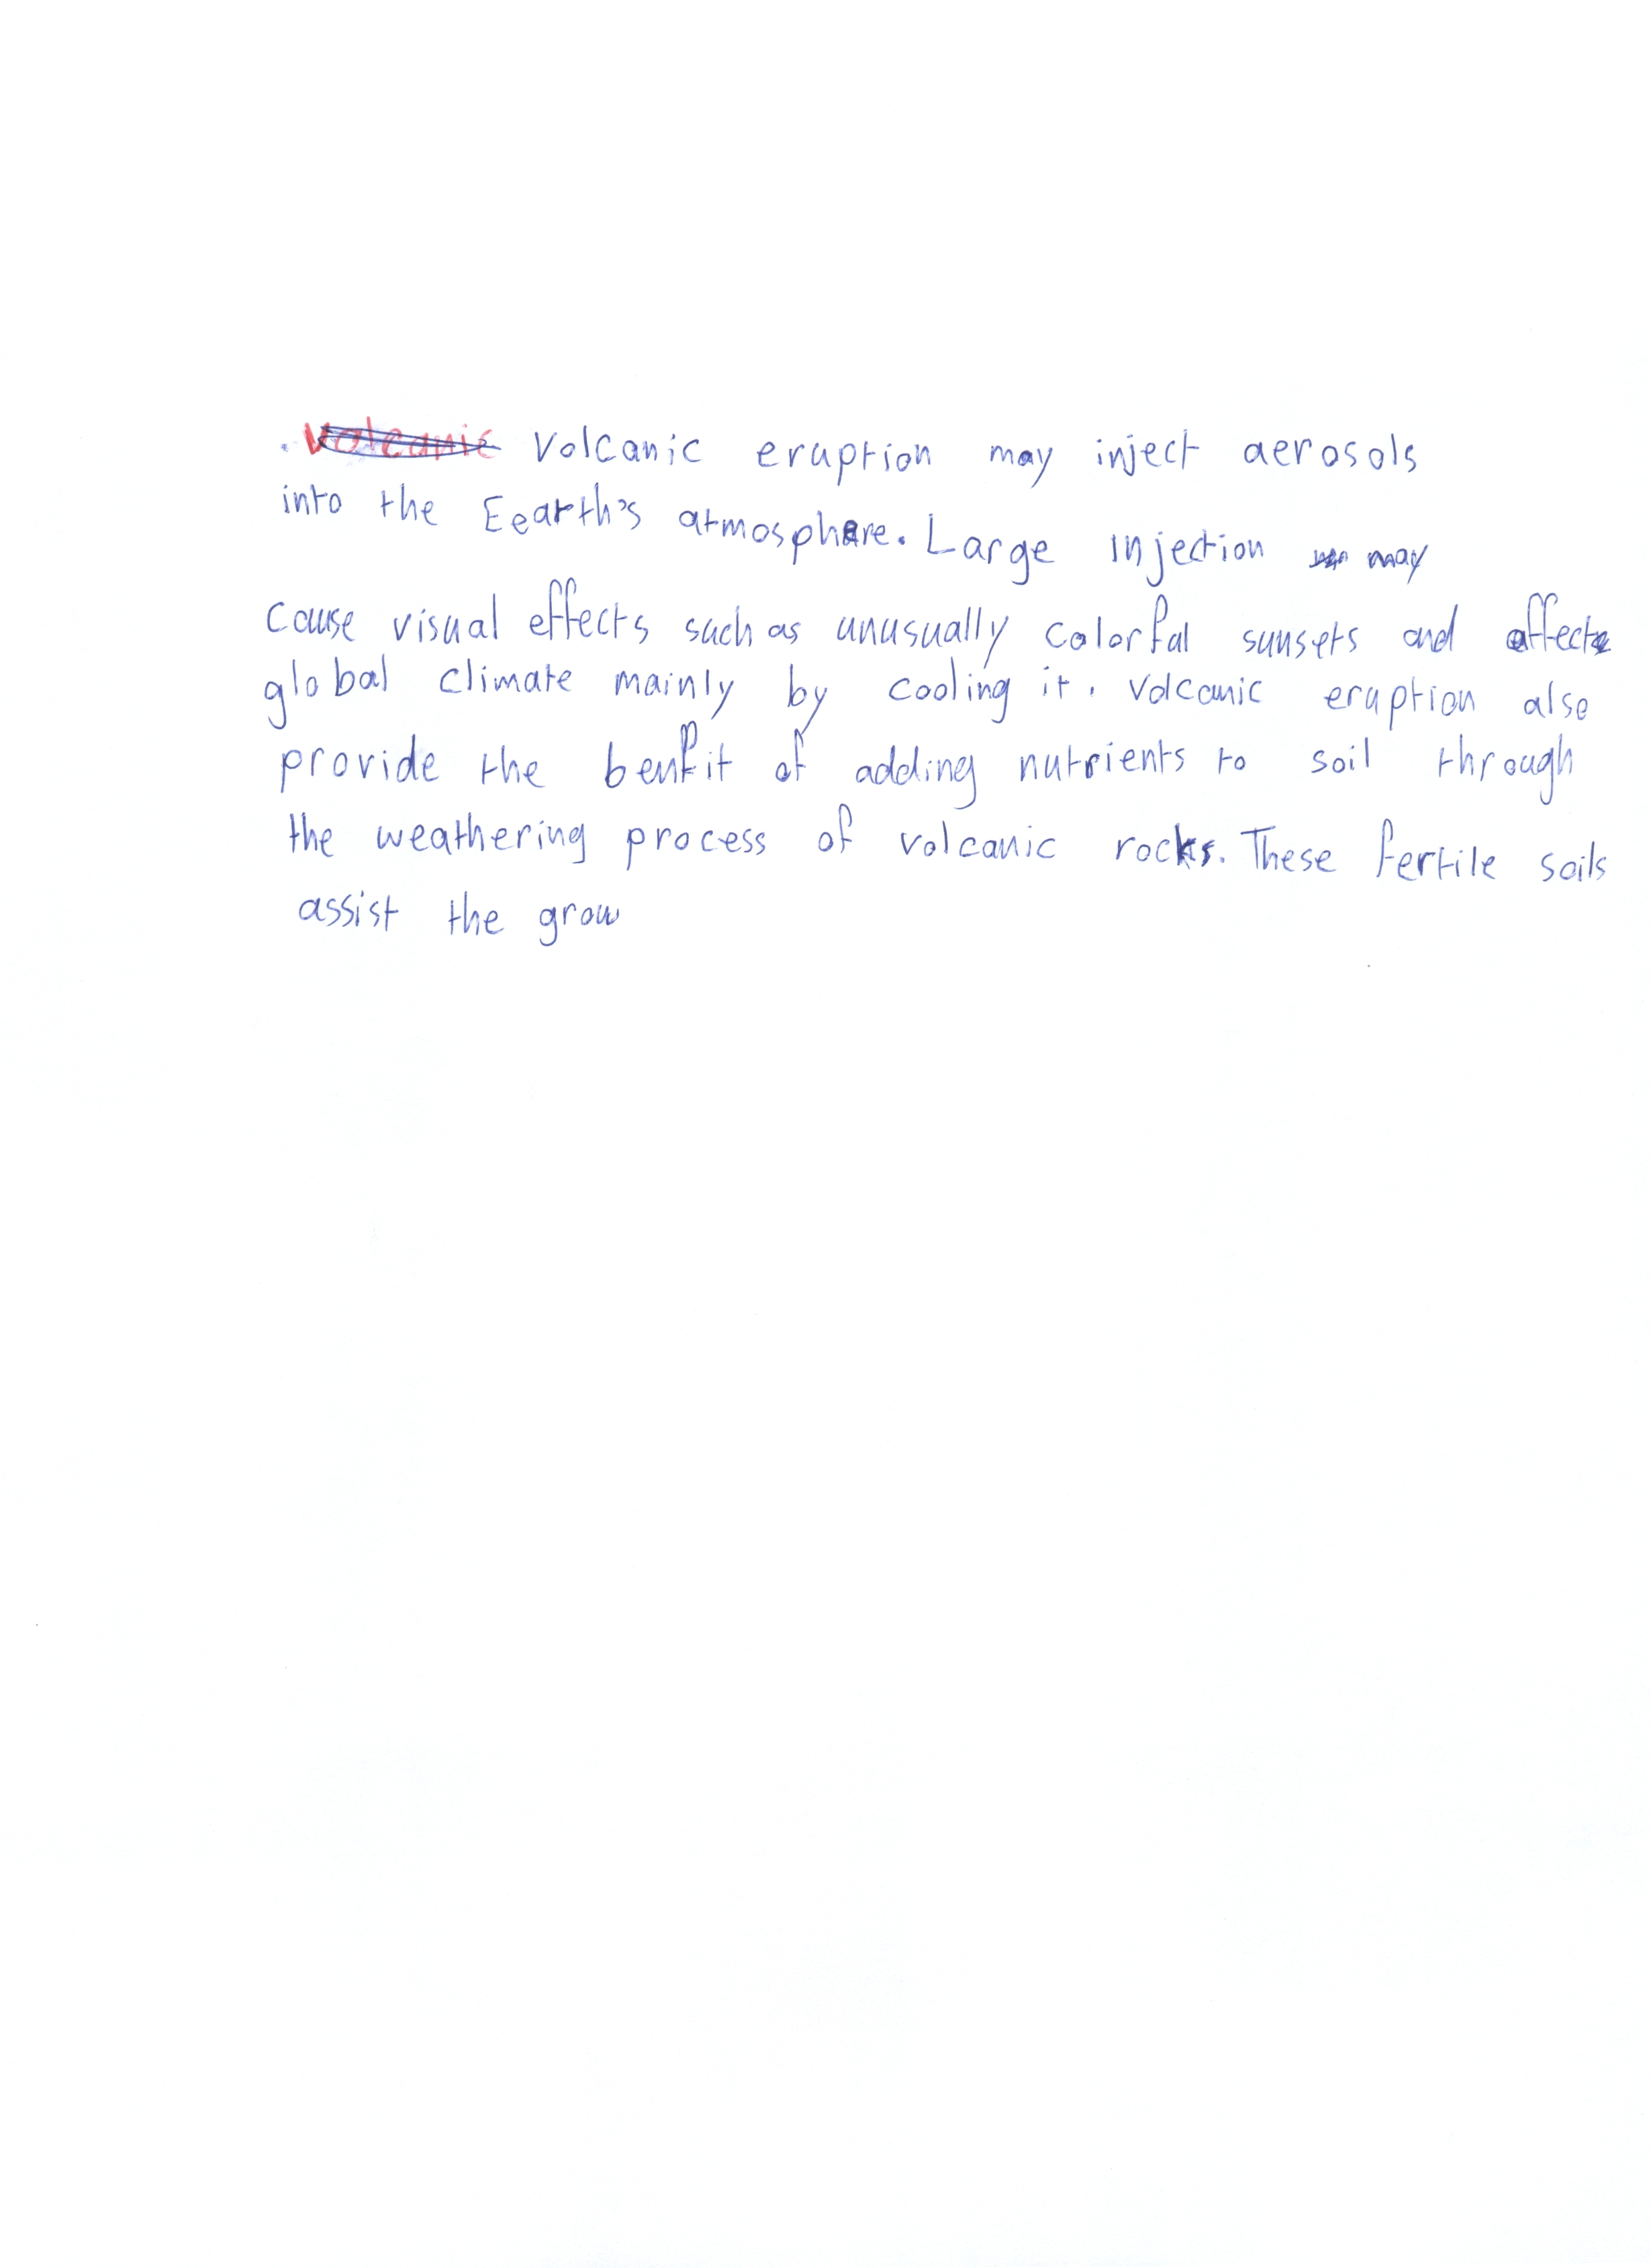 Volcanic Volcanic eruption may inject aerosols
into the Eearth's atmosphere. Large injection may
cause visual effects such as unusually colorful sunsets and affect
global climate mainly by cooling it. Volcanic eruption also
provide the benfit of adding nutrients to soil through
the weathering process of volcanic rocks. These fertile soils
assist the grow